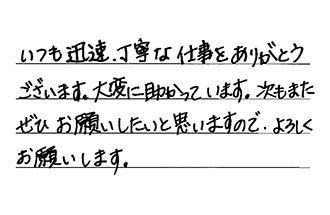 いつも迅速.丁寧な仕事をありがとう
ございます。大変に助かっています。次もまた
ぜひお願いしたいと思いますので.よろしく
お願いします。